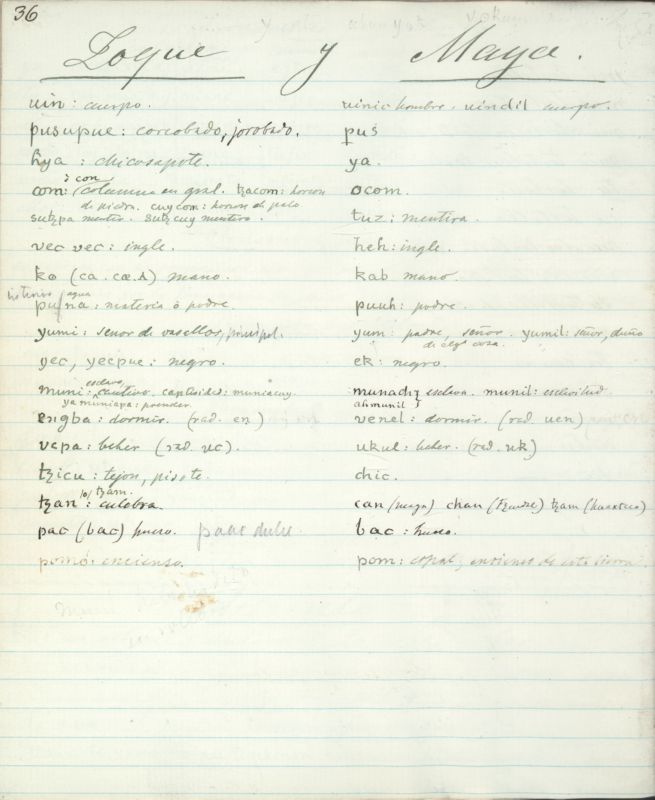 36
Zoque y Maya.
uin: cuerpo. uinic hombre. uindil cuerpo.
pusupue: corcobado, jorobado. puś
hya: chicosapote. ya.
ó con
com: columna en gral. tzacom: horcon ocom.
de piedra. cuycom: horcon de palo
sutzpa mentir. sutzcuy mentira. tuz: mentira.
vec vec: ingle. heh: ingle.
ko (ca. cæ. A) mano. kab mano.
agua
puna: materia ó podre. puuh: podre.
yumi: señor de vasallos, principal. yum: padre, señor. yumil: señor, dueño
de alga cosa.
yec, yecpue: negro. ek: negro.
esclavo,
muni: cautivo. captividad: municuy. munach esclava. munil: esclavitud
ya muniapa: prender ahmunil
engba: dormir. (rad. en) venel: dormir. (rad. uen)
ucpa: beber (rad. uc). ukul: beber. (rad. uk)
tzicu: tejon, pisote. chic.
tzam.
tzan: culebra. can (maya) chan (Tzendal) tzam (huasteco)
pac (bac) hueso. paac dulce bac: hueso.
pomó: encienso. pom: copal, encienso de esta tierra.